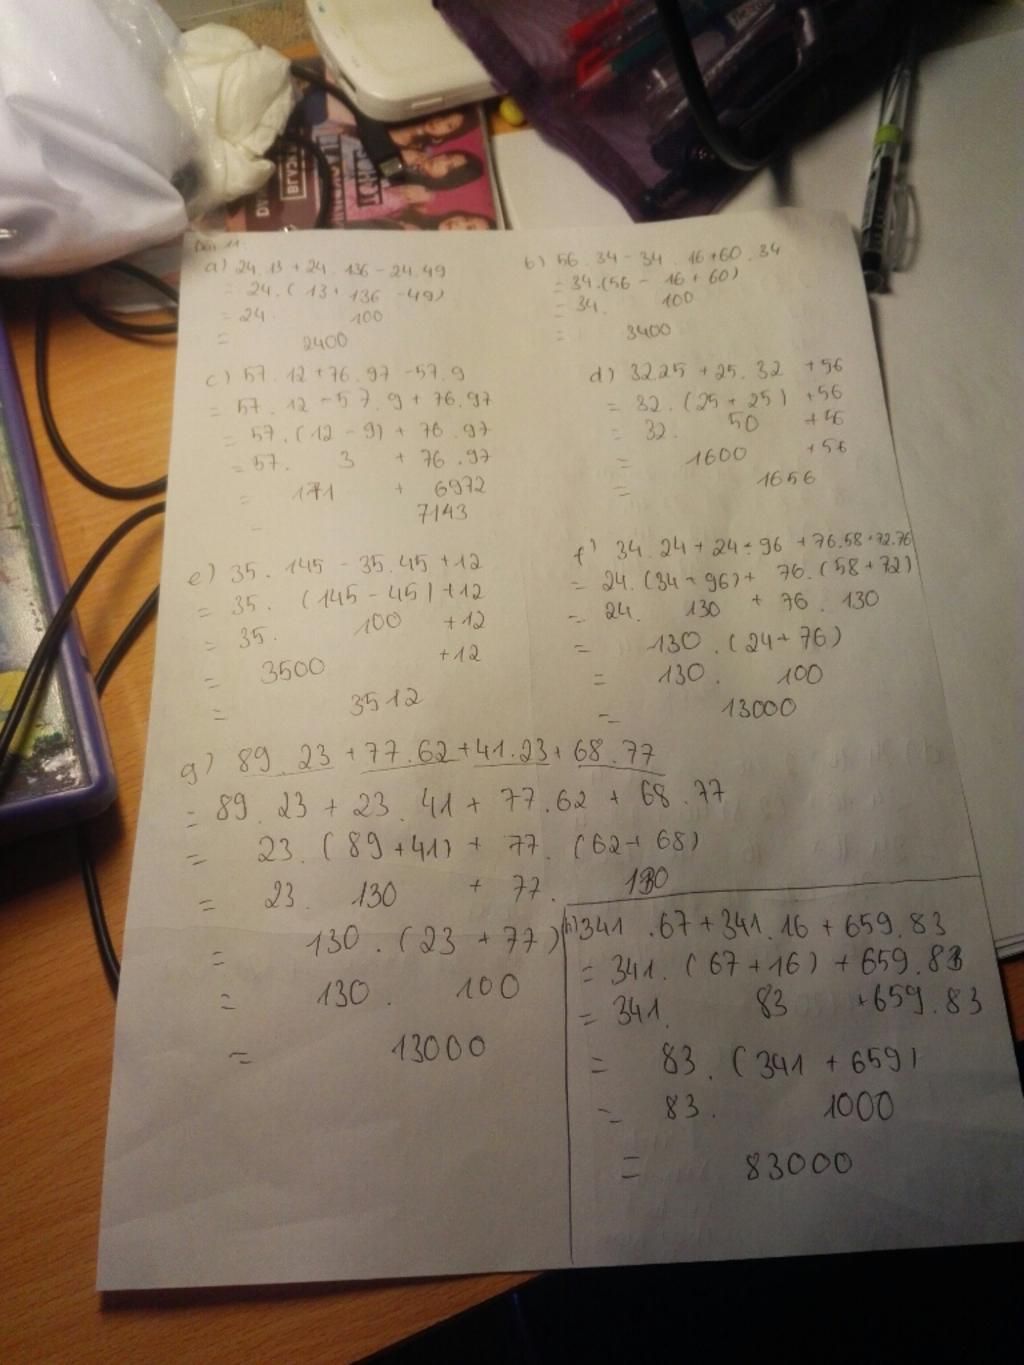 a) 24.13 + 24.136 - 24.49
= 24.(13 + 136 - 49)
= 24. 100
= 2400
b) 56.34 - 34.16 + 60.34
= 34.(56 - 16 + 60)
= 34. 100
= 3400
c) 57.12 + 76.97 - 57.9
= 57.12 - 57.9 + 76.97
= 57.(12 - 9) + 76.97
= 57. 3 + 76.97
= 171 + 6972
= 7143
d) 32.25 + 25.32 + 56
= 32.(25 + 25) + 56
= 32. 50 + 56
= 1600 + 56
= 1656
e) 35.145 - 35.45 + 12
= 35.(145 - 45) + 12
= 35. 100 + 12
= 3500 + 12
= 3512
f) 34.24 + 24.96 + 76.58 + 72.76
= 24.(34 + 96) + 76.(58 + 72)
= 24. 130 + 76.130
= 130.(24 + 76)
= 130. 100
= 13000
g) 89.23 + 77.62 + 41.23 + 68.77
= 89.23 + 23.41 + 77.62 + 68.77
= 23.(89 + 41) + 77.(62 + 68)
= 23. 130 + 77. 130
= 130.(23 + 77)
= 130. 100
= 13000
h) 341.67 + 341.16 + 659.83
= 341.(67 + 16) + 659.83
= 341. 83 + 659.83
= 83.(341 + 659)
= 83. 1000
= 83000